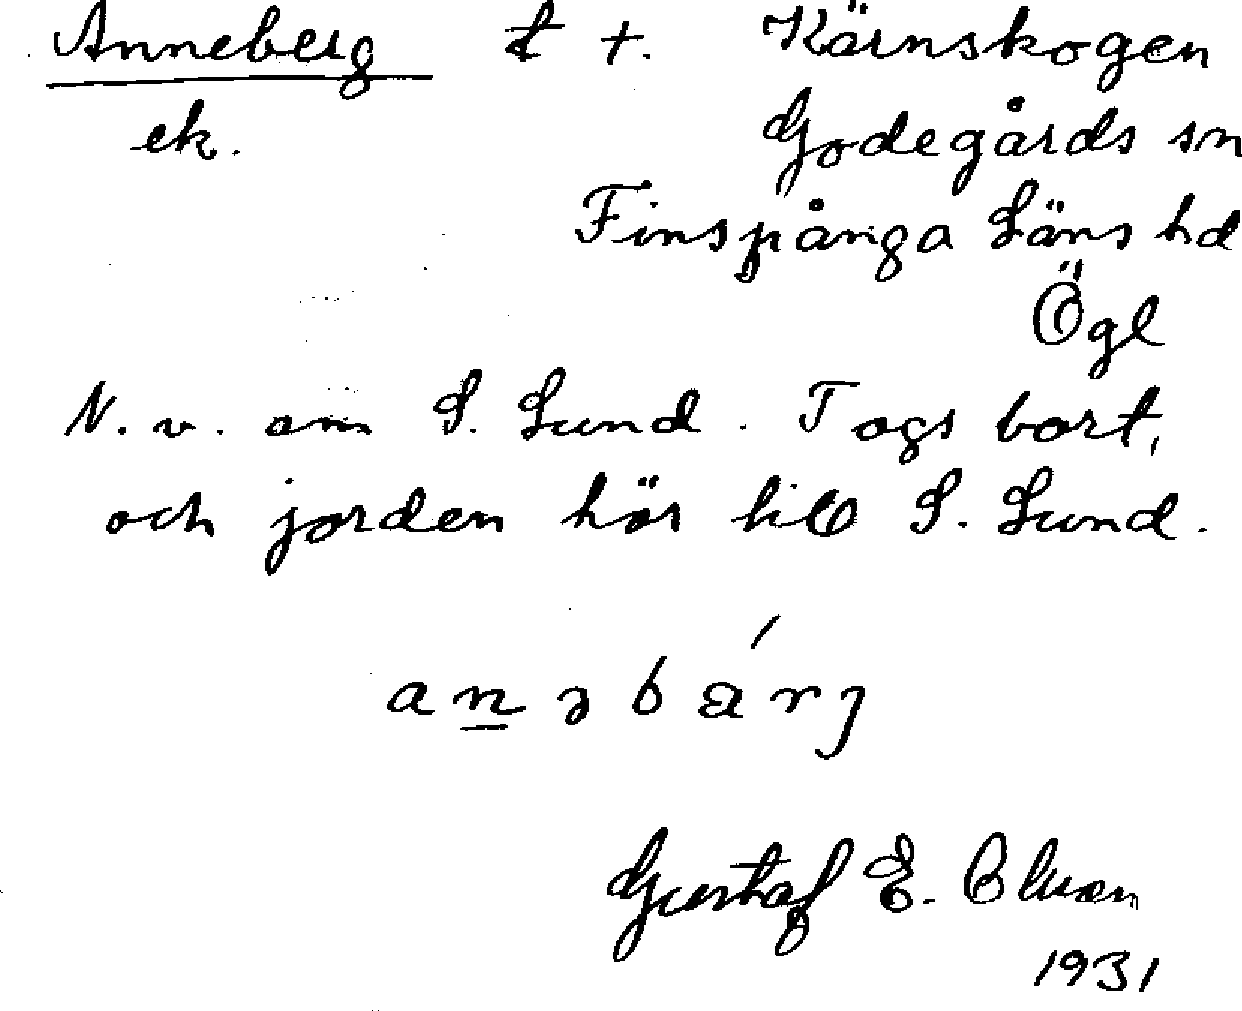 Anneberg t †. Kärnskogen
ek. Godegårds sn
Finspånga Läns hd
Ögl
N. v. om S. Lund. Togs bort,
och jorden hör till S. Lund.
anəbárj
Gustaf E. Olsson
1931